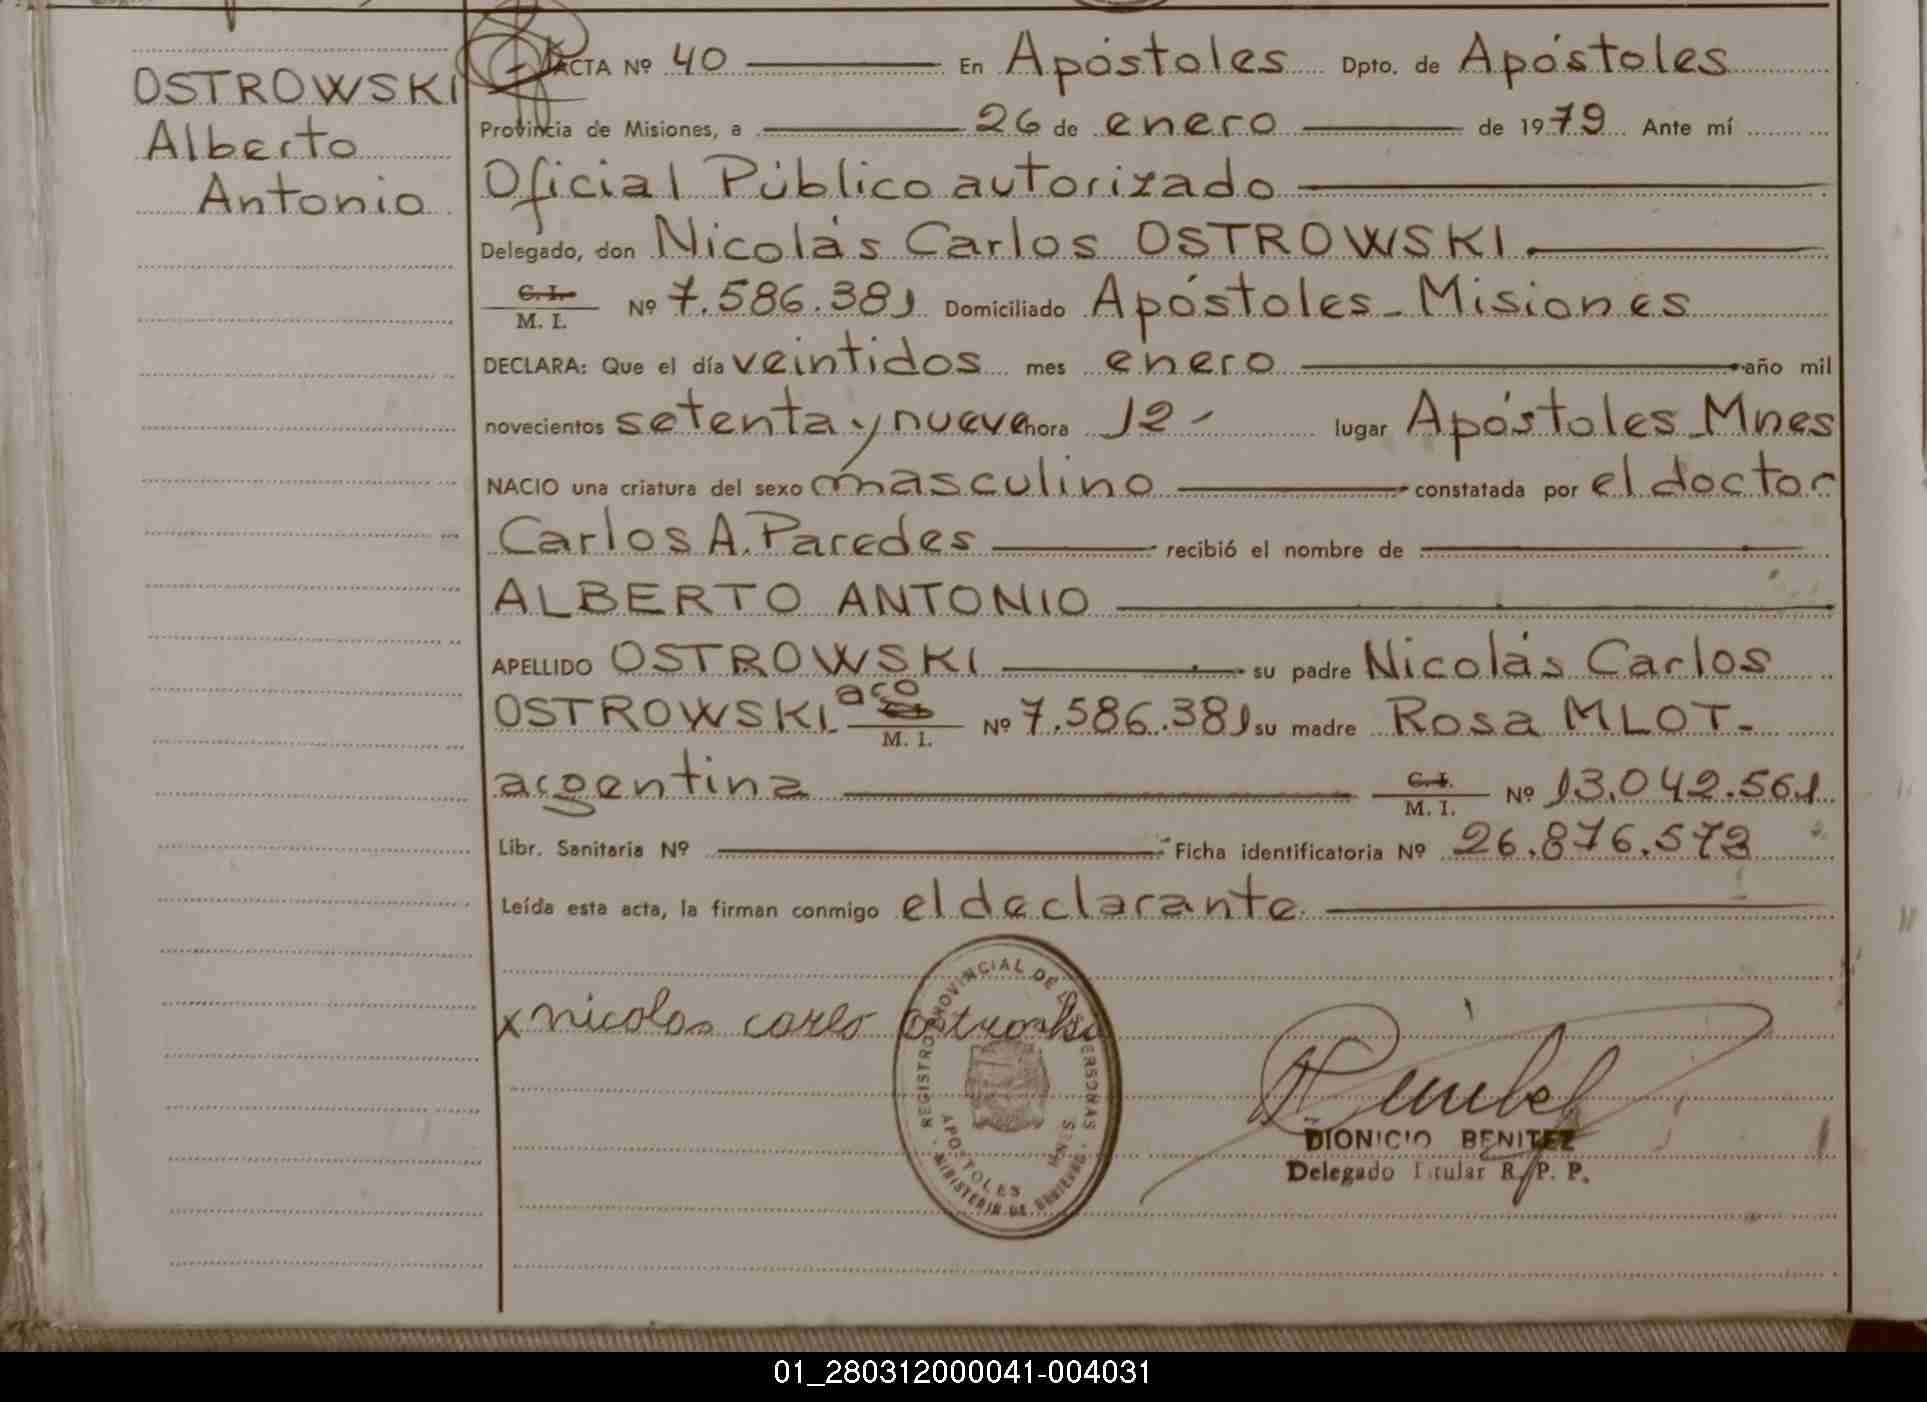 OSTROWSKI
Alberto
Antonio
ACTA Nº 40 En Apóstoles Dpto. de Apóstoles
Provincia de Misiones, a 26 de enero de 1979 Ante mí
Oficial Público autorizado
Delegado, don Nicolás Carlos OSTROWSKI.
C. I. M. I. Nº 7.586.381 Domiciliado Apóstoles - Misiones
DECLARA: Que el día veintidos mes enero año mil
novecientos setenta y nueve hora 12 - lugar Apóstoles - Mnes
NACIO una criatura del sexo masculino constatada por el doctor
Carlos A. Paredes recibió el nombre de
ALBERTO ANTONIO
APELLIDO OSTROWSKI su padre Nicolás Carlos
OSTROWSKI - arg M. I. Nº 7.586.381 su madre Rosa MLOT -
argentina C. I. M. I. Nº 13.042.561
Libr. Sanitaria Nº Ficha identificatoria Nº 26.876.572
Leída esta acta, la firman conmigo el declarante.
x nicolas carlo ostroski
REGISTRO PROVINCIAL DE LAS PERSONAS
APOSTOLES MNES
MINISTERIO DE GOBIERNO
DIONICIO BENITEZ
Delegado Titular R. P. P.
01_280312000041-004031